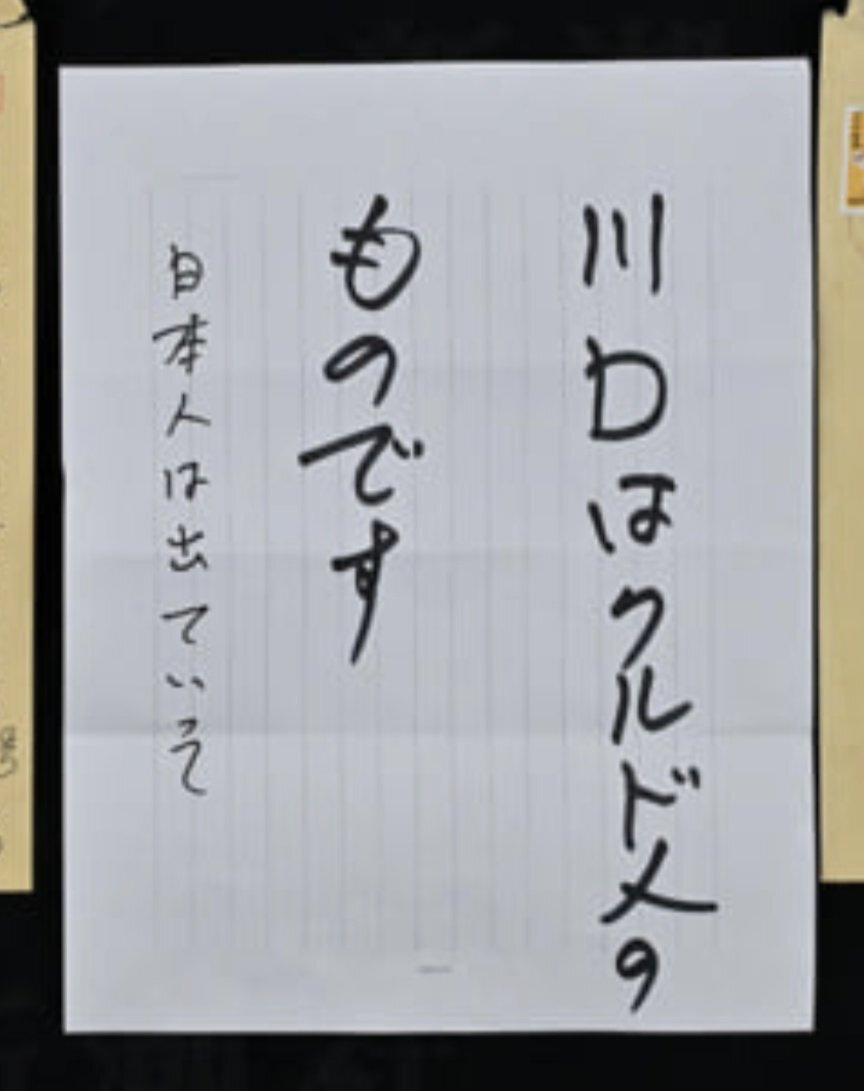 川口はクルド人の
ものです
日本人は出ていって